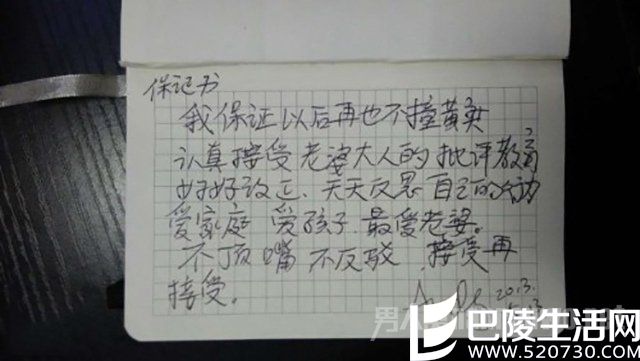 保证书
我保证以后再也不撞黄实
认真接受老婆大人的批评教育
好好改正、天天反思自己的
爱家庭 爱孩子 最爱老婆。
不顶嘴 不反驳 接受再
接受。
2013.
5.13
巴陵生活网
www.520730.com